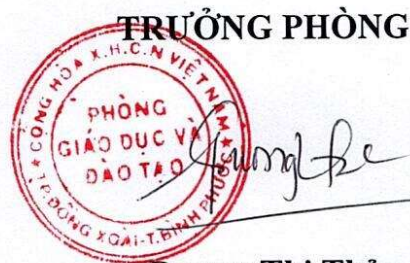 TRƯỞNG PHÒNG
CỘNG HÒA X.H.C.N VIỆT NAM
PHÒNG
GIÁO DỤC VÀ
ĐÀO TẠO
TP.ĐỒNG XOÀI-T.BÌNH PHƯỚC